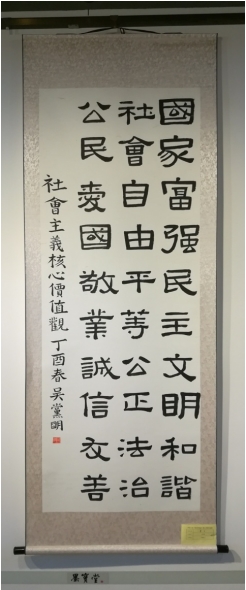 國家富强民主文明和諧
社會自由平等公正法治
公民愛國敬業誠信友善
社會主義核心價值觀 丁酉春 吴黨明
墨寶堂。